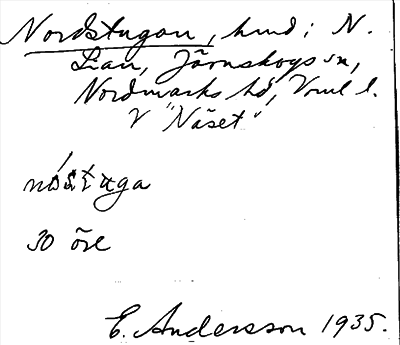 Nordstugan, hmd i N.
Lian, Järnskogs sn,
Nordmarks hd, Vrml l.
V "Näset"
30 öre
E. Andersson 1935.